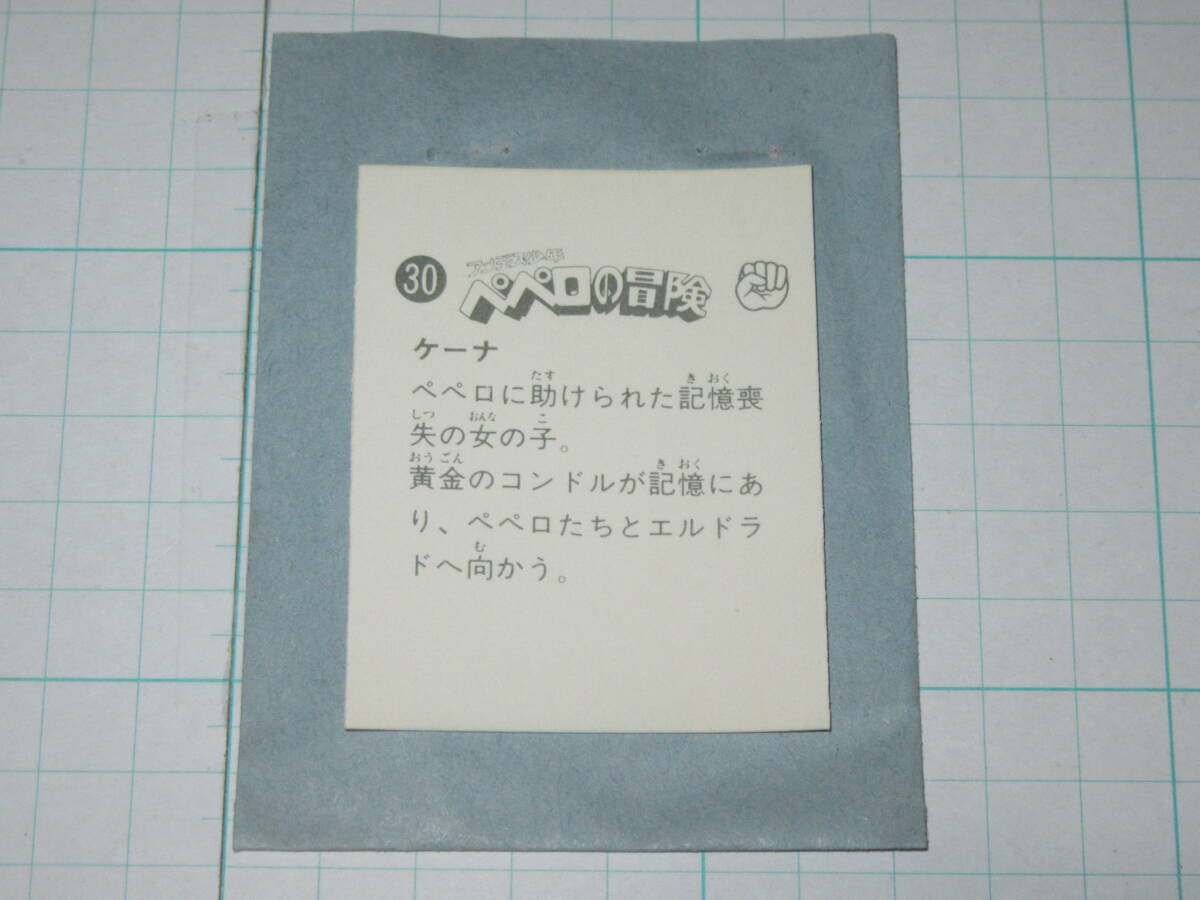 30
アンデス少年
ペペロの冒険
ケーナ
ペペロに助けられた記憶喪
失の女の子。
黄金のコンドルが記憶にあ
り、ペペロたちとエルドラ
ドへ向かう。